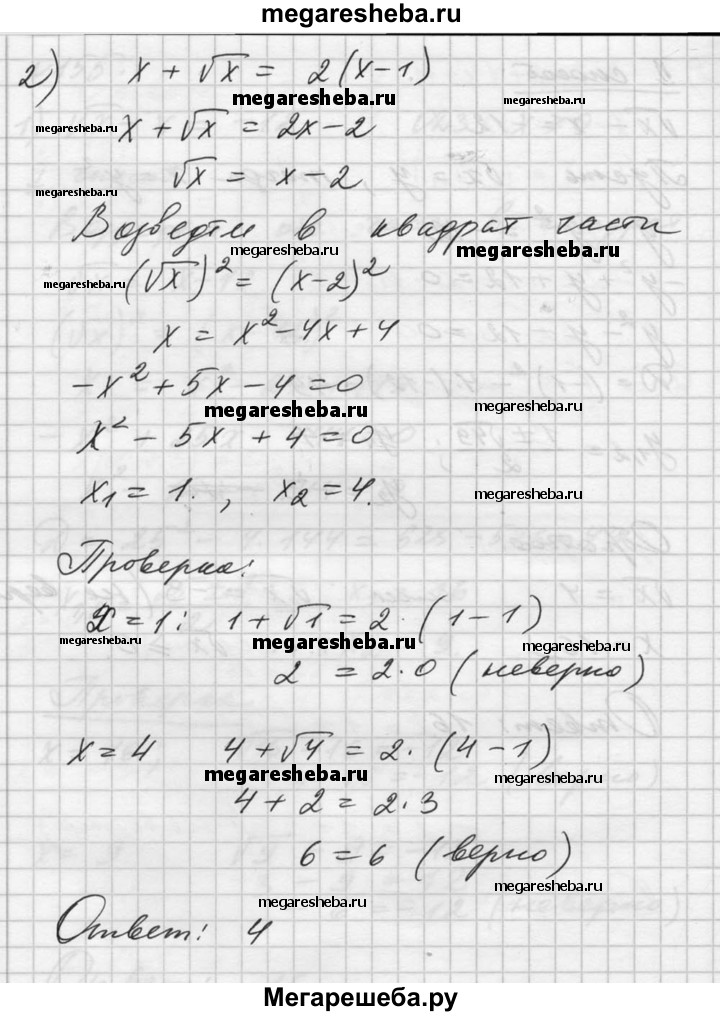 megaresheba.ru
2) x + √x = 2(x-1)
megaresheba.ru
megaresheba.ru
megaresheba.ru x + √x = 2x - 2
√x = x - 2
Возведём в квадрат части
megaresheba.ru
megaresheba.ru
megaresheba.ru (√x)² = (x-2)²
x = x² - 4x + 4
-x² + 5x - 4 = 0
megaresheba.ru
megaresheba.ru
x² - 5x + 4 = 0
x₁ = 1., x₂ = 4.
megaresheba.ru
Проверка:
x = 1: 1 + √1 = 2·(1-1)
megaresheba.ru
megaresheba.ru
megaresheba.ru
2 = 2·0 (неверно)
x = 4 4 + √4 = 2·(4-1)
megaresheba.ru
megaresheba.ru
4 + 2 = 2·3
6 = 6 (верно)
megaresheba.ru
megaresheba.ru
Ответ: 4
megaresheba.ru
megaresheba.ru
Мегарешеба.ру